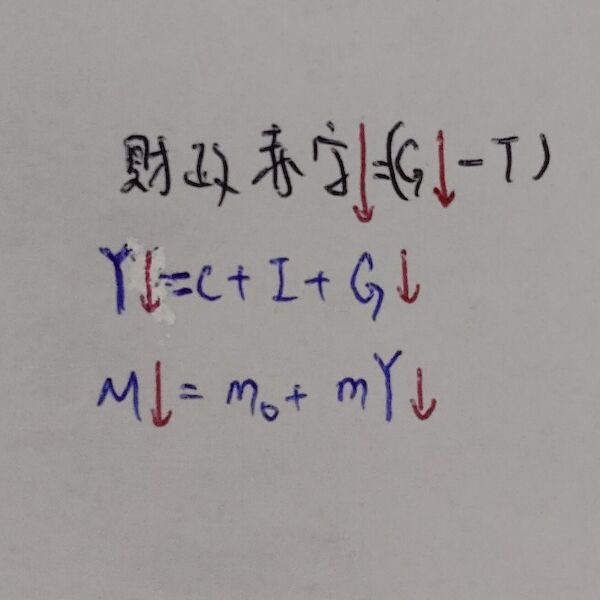 财政赤字↓=(G↓-T)
Y↓=C+I+G↓
M↓=m₀+mY↓